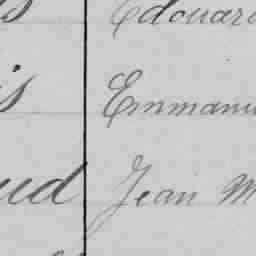 s Edouard
is Emmanu
ud Jean M